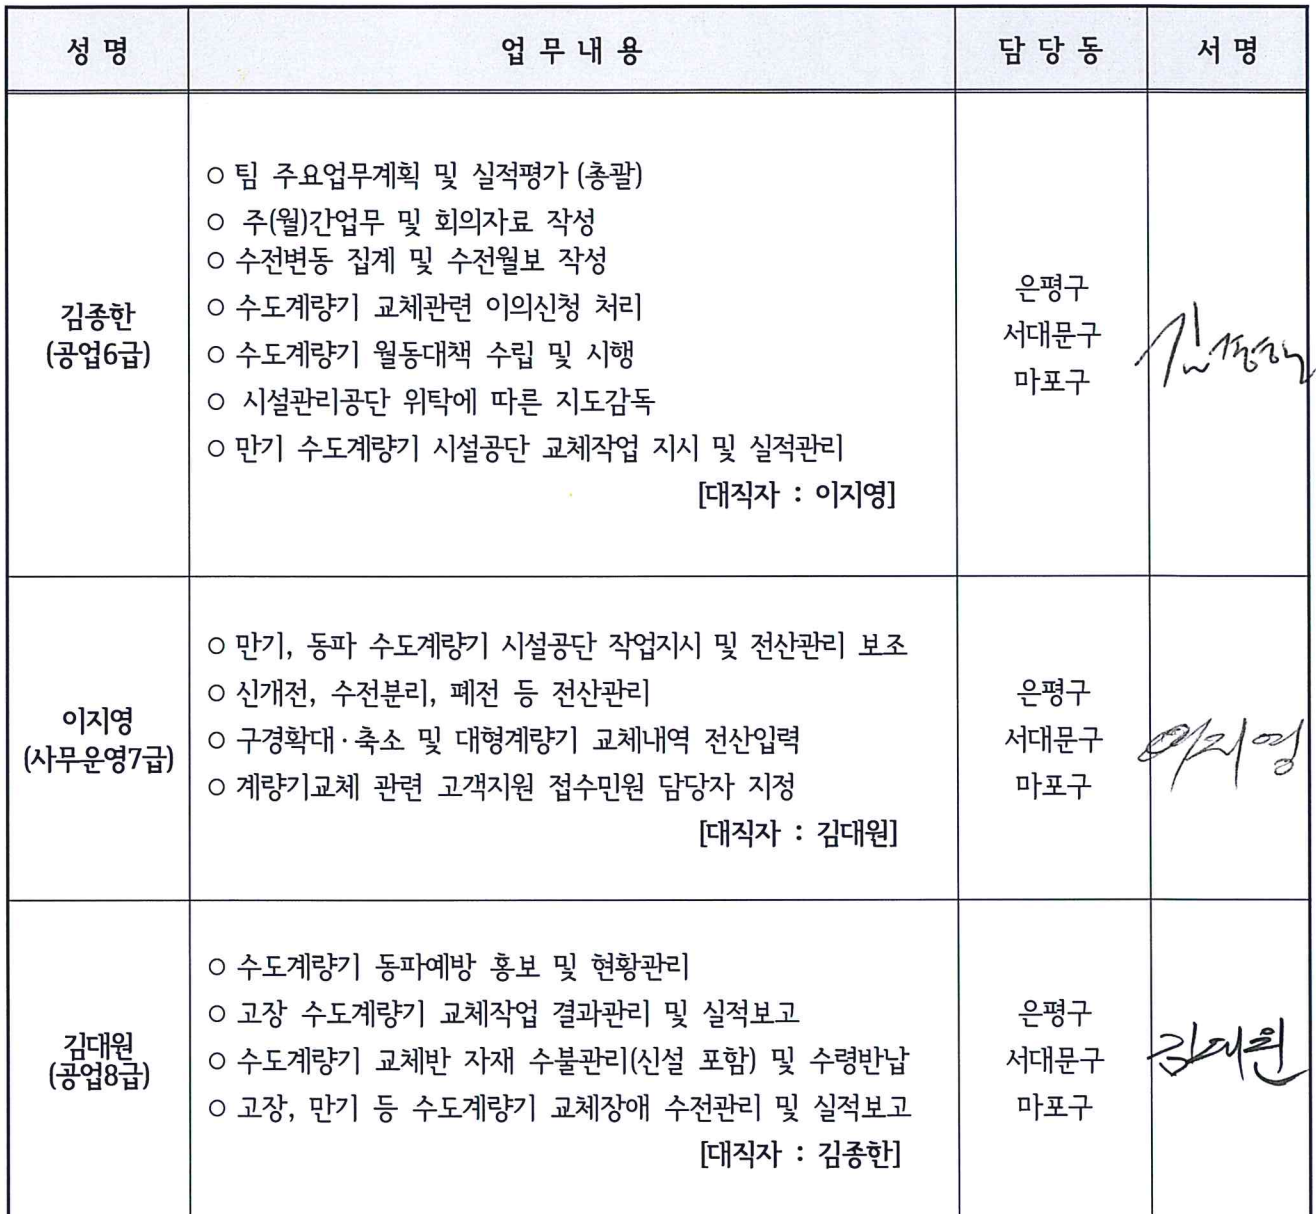 성 명 업 무 내 용 담 당 동 서 명
김종한
(공업6급)
○ 팀 주요업무계획 및 실적평가 (총괄)
○ 주(월)간업무 및 회의자료 작성
○ 수전변동 집계 및 수전월보 작성
○ 수도계량기 교체관련 이의신청 처리
○ 수도계량기 월동대책 수립 및 시행
○ 시설관리공단 위탁에 따른 지도감독
○ 만기 수도계량기 시설공단 교체작업 지시 및 실적관리
[대직자 : 이지영]
은평구
서대문구
마포구
김종한
이지영
(사무운영7급)
○ 만기, 동파 수도계량기 시설공단 작업지시 및 전산관리 보조
○ 신개전, 수전분리, 폐전 등 전산관리
○ 구경확대·축소 및 대형계량기 교체내역 전산입력
○ 계량기교체 관련 고객지원 접수민원 담당자 지정
[대직자 : 김대원]
은평구
서대문구
마포구
이지영
김대원
(공업8급)
○ 수도계량기 동파예방 홍보 및 현황관리
○ 고장 수도계량기 교체작업 결과관리 및 실적보고
○ 수도계량기 교체반 자재 수불관리(신설 포함) 및 수령반납
○ 고장, 만기 등 수도계량기 교체장애 수전관리 및 실적보고
[대직자 : 김종한]
은평구
서대문구
마포구
김대원